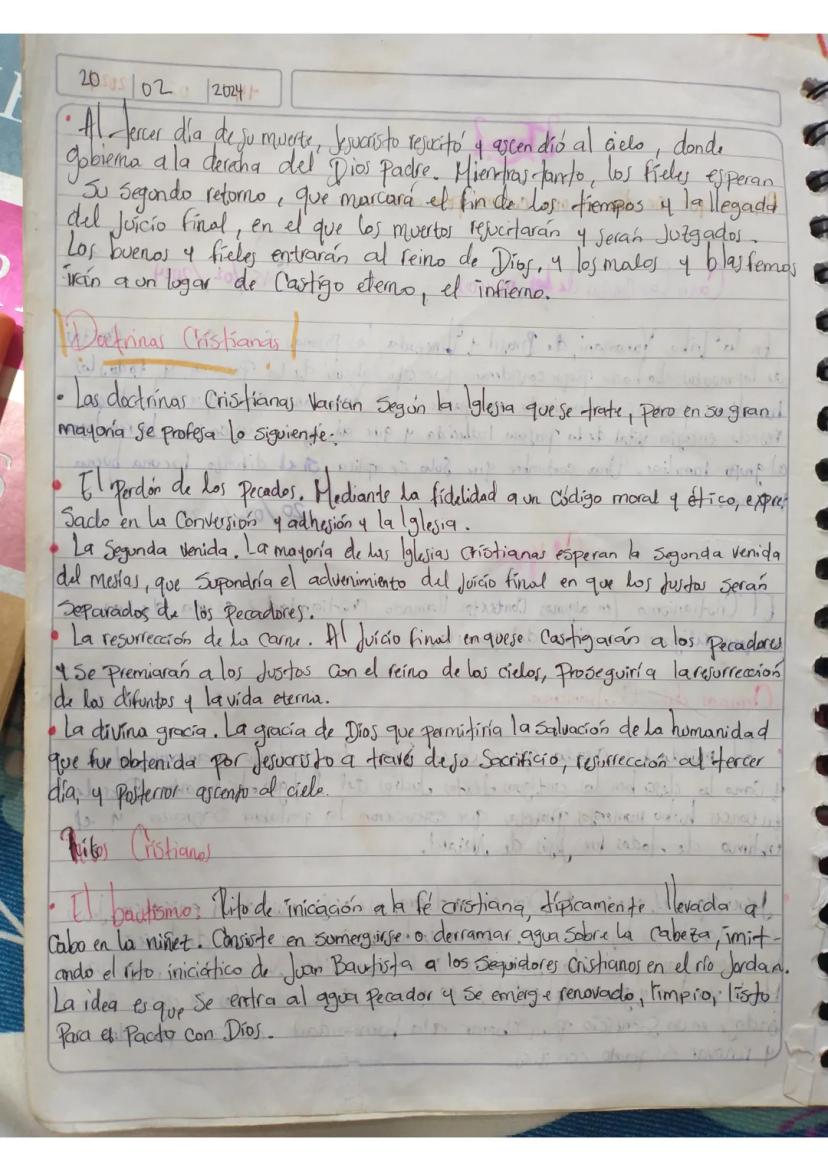 20 / 02 / 2024
• Al tercer día de su muerte, Jesucristo resucitó y ascendió al cielo, donde
gobierna a la derecha del Dios Padre. Mientras tanto, los fieles esperan
Su segundo retorno, que marcará el fin de los tiempos y la llegada
del Juicio final, en el que los muertos resucitarán y serán Juzgados.
Los buenos y fieles entrarán al reino de Dios, y los malos y blasfemos
irán a un lugar de Castigo eterno, el infierno.
Doctrinas Cristianas
• Las doctrinas Cristianas Varían Según la Iglesia que se trate, pero en su gran
mayoría se profesa lo siguiente:
• El Perdón de los Pecados. Mediante la fidelidad a un Código moral y ético, expre-
Sado en la Conversión y adhesión y la Iglesia.
• La Segunda Venida. La mayoría de las Iglesias Cristianas esperan la Segunda venida
del mesías, que Supondría el advenimiento del Juicio final en que los Justos serán
Separados de los Pecadores.
• La resurrección de la Carne. Al Juicio final en que se Castigarán a los Pecadores
y Se Premiarán a los Justos Con el reino de los cielos, Proseguiría la resurrección
de los difuntos y la vida eterna.
• La divina gracia. La gracia de Dios que permitiría la Salvación de la humanidad
que fue obtenida por Jesucristo a través de so Sacrificio, resurrección al tercer
día, y Posterior ascenso al cielo.
Ritos Cristianos
• El bautismo: Rito de iniciación a la fé cristiana, típicamente llevada al
Cabo en la niñez. Consiste en sumergirse o derramar agua Sobre la Cabeza, imit-
ando el rito iniciático de Juan Bautista a los Seguidores Cristianos en el río Jordan.
La idea es que Se entra al agua Pecador y Se emerge renovado, limpio, listo
Para el Pacto con Dios.